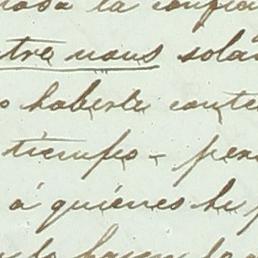 la confia
ntre nous sola
o haberte conte
tiempo - per
á quiénes he